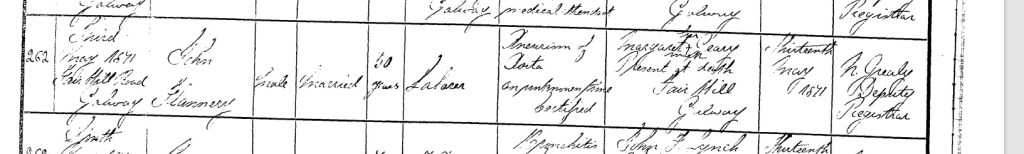 Galway
Galway medical attendant Galway Registrar
262
Third
May 1871
Fair Hill Road
Galway
John
Flannery
Male
Married
50
years
Laborer
Aneurism of
Aorta
an unknown time
Certified
Margaret Geary
Present at death
Fair Hill
Galway
Thirteenth
May
1871
N Grealy
Deputy
Registrar
Bronchitis
John F Lynch
Thirteenth